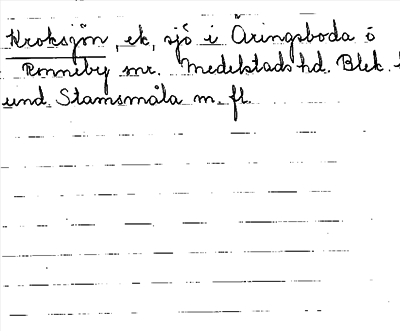 Kroksjön, ek, sjö i Äringsboda ö
Ronneby snr. Medelstads hd. Blek.
und. Stamsmåla m. fl.